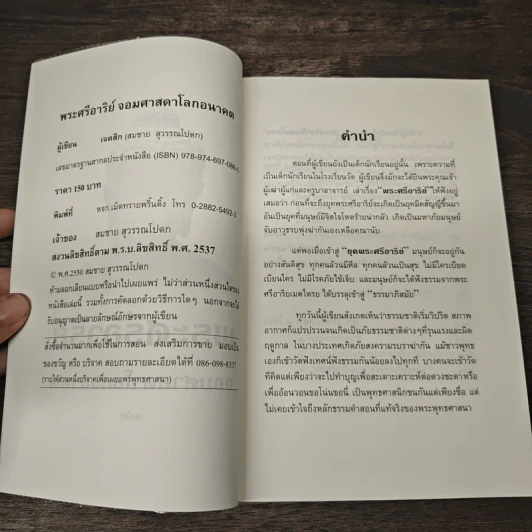 พระศรีอาริย์ จอมศาสดาโลกอนาคต
ผู้เขียน เจตสิก (สมชาย สุวรรณโปดก)
เลขมาตรฐานสากลประจำหนังสือ (ISBN) 978-974-697-086-
ราคา 150 บาท
พิมพ์ที่ หจก.เม็ดทรายพริ้นติ้ง โทร 0-2882-5492-
เจ้าของ สมชาย สุวรรณโปดก
สงวนลิขสิทธิ์ตาม พ.ร.บ.ลิขสิทธิ์ พ.ศ. 2537
© พ.ศ.2550 สมชาย สุวรรณโปดก
ห้ามลอกเลียนแบบหรือนำไปเผยแพร่ ไม่ว่าส่วนหนึ่งส่วนใดของ
หนังสือเล่มนี้ รวมทั้งการคัดลอกด้วยวิธีการใดๆ นอกจากจะได้
รับอนุญาตเป็นลายลักษณ์อักษรจากผู้เขียน
สั่งซื้อจำนวนมากเพื่อใช้ในการสอน ส่งเสริมการขาย มอบเป็น
ของขวัญ หรือ บริจาค สอบถามรายละเอียดได้ที่ 086-098-8337
(รายได้ส่วนหนึ่งบริจาคเพื่อเผยแพร่พุทธศาสนา)
คำนำ
ตอนที่ผู้เขียนยังเป็นเด็กนักเรียนอยู่นั้น เพราะความที่
เป็นเด็กนักเรียนในโรงเรียนวัด ผู้เขียนจึงมักจะได้ยินพระคุณเจ้า
ผู้เฒ่าผู้แก่และครูบาอาจารย์ เล่าเรื่อง "พระศรีอาริย์" ให้ฟังอยู่
เสมอว่า ก่อนที่จะถึงยุคพระศรีอาริย์จะเกิดเป็นยุคมิคสัญญีขึ้นมา
อันเป็นยุคที่มนุษย์มีจิตใจโหดร้ายน่ากลัว เกิดเป็นมหาภัยมนุษย์
จับอาวุธรบพุ่งฆ่ากันเองเหลือคณานับ
แต่พอเมื่อเข้าสู่ "ยุคพระศรีอาริย์" มนุษย์ก็จะอยู่กัน
อย่างสันติสุข ทุกคนล้วนมีศีล ทุกคนล้วนเป็นสุข ไม่มีใครเบียด
เบียนใคร ไม่มีโรคภัยไข้เจ็บ และมนุษย์ก็จะได้ฟังธรรมจากพระ
ศรีอาริยเมตไตรย ได้บรรลุเข้าสู่ "ธรรมาภิสมัย"
ทุกวันนี้ผู้เขียนสังเกตเห็นว่าธรรมชาติเริ่มวิปริต สภาพ
อากาศก็แปรปรวนจนเกิดเป็นภัยธรรมชาติต่างๆที่รุนแรงและผิด
ฤดูกาล ในบางประเทศเกิดภัยสงครามรบราฆ่ากัน แม้ชาวพุทธ
เองก็เข้าวัดฟังเทศน์ฟังธรรมกันน้อยลงไปทุกที บางคนจะเข้าวัด
ทีก็คิดแต่เพียงว่าจะไปทำบุญเพื่อสะเดาะเคราะห์ต่อดวงชะตาหรือ
เพื่ออ้อนวอนขอโน่นขอนี่ เป็นพุทธศาสนิกชนกันแต่เพียงชื่อ แต่
ไม่เคยเข้าใจถึงหลักธรรมคำสอนที่แท้จริงของพระพุทธศาสนา